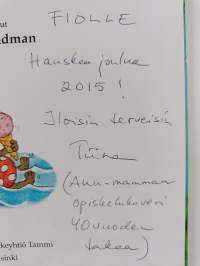 FIOLLE
ut
dman
Hauskaa joulua
2015!
Iloisin terveisin
Tiina
(Anu-mamman
opiskelukaveri
40 vuoden
takaa)
keyhtiö Tammi
sinki